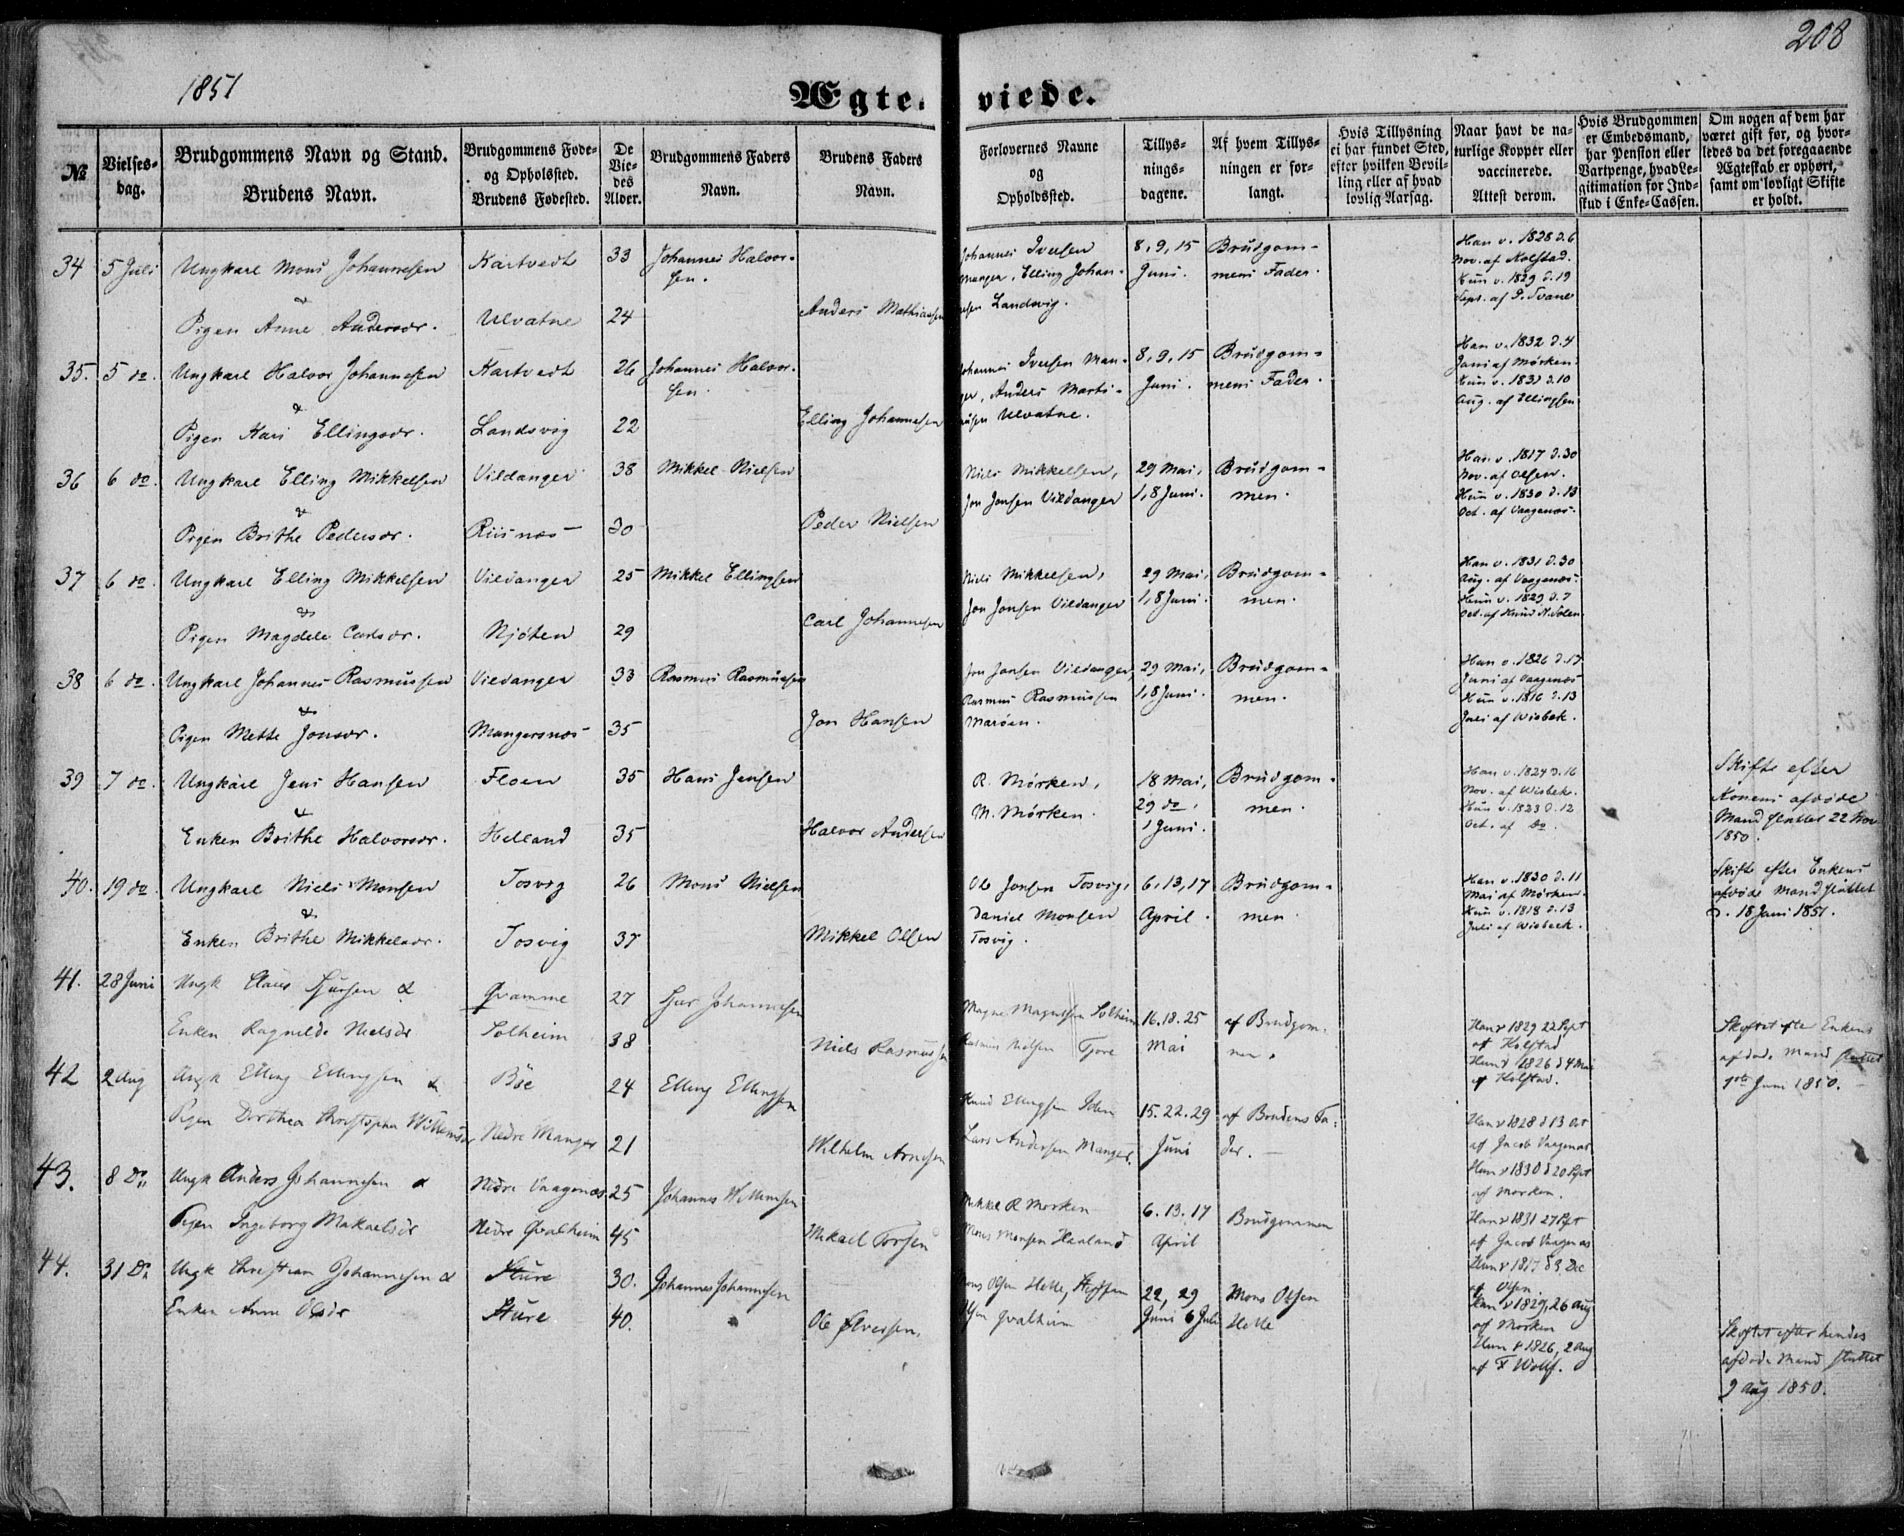 208
1851
Ægteviede.
№
Vielsesdag.
Brudgommens Navn og Stand.
Brudens Navn.
Brudgommens Føde- og Opholssted.
Brudens Fødested.
De Viedes Alder.
Brudgommens Faders Navn.
Brudens Faders Navn.
Forlovernes Navne og Opholdssted.
Tillysningsdagene.
Af hvem Tillysningen er forlangt.
Hvis Tillysning ei har fundet Sted, efter hvilken Bevilling eller af hvad lovlig Aarsag.
Naar havt de naturlige Kopper eller vaccinerede. Attest derom.
Hvis Brudgommen er Embedsmand, har Pension eller Vartpenge, hvad Legitimation for Indskud i Enke-Cassen.
Om nogen af dem har været gift før, og hvorledes da det foregaaende Ægteskab er ophørt, samt om lovligt Skifte er holdt.
34 5 Juli Ungkarl Mons Johannesen Kartvedt 33 Johannes Halvorsen. Johannes Iversen Manger, Elling Johannesen Landsvig. 8, 9, 15 Juni. Brudgommens Fader. Han v. 1828 d. 6 Nov. af Kolstad.
& Pigen Anne Andersdr. Ulvatne 24 Anders Mathiasen Hun v. 1829 d. 19 Sept. af P. Tvane
35. 5 do. Ungkarl Halvor Johannesen Kartvedt 26 Johannes Halvorsen. Johannes Iversen Manger, Anders Martinusen Ulvatne. 8, 9, 15 Juni. Brudgommens Fader. Han v. 1832 d. 4 Juni af Mørken.
& Pigen Kari Ellingsdr. Landsvig 22 Elling Johannesen Hun v. 1831 d. 10 Aug. af Ellingsen
36 6 do. Ungkarl Elling Mikkelsen Vildanger 38 Mikkel Nielsen Niels Mikkelsen, Jon Jonsen Vildanger 29 Mai, 1, 8 Juni. Brudgommen. Han v. 1817 d. 30 Nov. af Olsen.
& Pigen Brithe Pedersdr. Riisnæs 30 Peder Nielsen Hun v. 1830 d. 13 Oct. af Vaagenæs.
37 6 do. Ungkarl Elling Mikkelsen Vildanger 25 Mikkel Ellingsen Niels Mikkelsen, Jon Jonsen Vildanger 29 Mai, 1, 8 Juni. Brudgommen. Han v. 1831 d. 30 Aug. af Vaagenæs.
& Pigen Magdele Carlsdr. Njøten 29 Carl Johannesen Hun v. 1829 d. 7 Oct. af Knud
38 6 do. Ungkarl Johannes Rasmussen Vildanger 33 Rasmus Rasmussen Jon Jonsen Vildanger, Rasmus Rasmussen Marøen. 29 Mai, 1, 8 Juni. Brudgommen. Han v. 1826 d. 17 Juni af Vaagenæs
& Pigen Mette Jonsdr. Mangersnæs 35 Jon Hansen Hun v. 1816 d. 13 Juli af Wisbek.
39 7 do. Ungkarl Jens Hansen Floen 35 Hans Jensen R. Mørken, M. Mørken. 18 Mai, 29 do, 1 Juni. Brudgommen. Han v. 1824 d. 16 Nov. af Wisbek. Skifte efter Konens afdøde Mand sluttet 22 Nov 1850.
& Enken Brithe Halvorsdr. Helland 35 Halvor Andersen Hun v. 1823 d. 12 Oct. af do.
40. 19 do Ungkarl Niels Monsen Tosvig 26 Mons Nielsen Ole Jonsen Tosvig, Daniel Monsen Tosvig. 6, 13, 17 April. Brudgommen. Han v. 1830 d. 11 Mai af Mørken. Skifte efter Enkens afdøde Mand sluttet d. 18 Juni 1851.
& Enken Brithe Mikkelsdr. Tosvig 37 Mikkel Olsen Hun v. 1818 d. 13 Juli af Wisbech.
41. 28 Juni Ungk Claus & Qvamme 27 Johannesen Magne Magnesen Solheim 16. 18. 25 Mai af Brudgommen. Han v 1829 22 Sept af Kolstad Skiftet efter Enkens afdøde Mand sluttet 1ste Juni 1850.
Enken Ragnilde Nielsdr Solheim 38 Niels Rasmussen Rasmus Nielsen Tjore Hun v 1826 d 4 Mai af Kolstad.
42 2 Aug Ungk Elling Ellingsen & Bøe 24 Elling Ellingsen Knud Ellingsen 15. 22. 29 Juni af Brudens Fader. Han v 1828 d 13 Oct af Jacob Vaagenæs
Pigen Dorthea Christopha Willumsdr Nedre Manger 21 Wilhelm Arnesen Lars Andersen Manger. Hun v 1830 d 20 Sept af Mørken.
43. 8 Do Ungk Anders Johannesen & Nedre Vaagenæs 25 Johannes Willumsen Mikkel R Mørken 6. 13. 17 April Brudgommen Han v 1831 27 Sept af Jacob Vaagenæs
Pigen Ingeborg Mikaelsdr Nedre Qvalheim 45 Mikael Torsen Mons Monsen Haaland Hun v 1817. d 3 Dec af Olsen.
44. 31 Do Ungk Christian Johannesen & Sture 30. Johannes Johannesen Mons Olsen Helle, Steffen Olsen Qvalheim 22, 29 Juni 6 Juli Mons Olsen Helle Han v 1829, 26 Aug af Mørken
Enken Anne Olsdr Sture 40. Ole Hun v 1826, 2 Aug af F Wolff. Skiftet efter hendes afdøde Mand sluttet 9 Aug 1850.